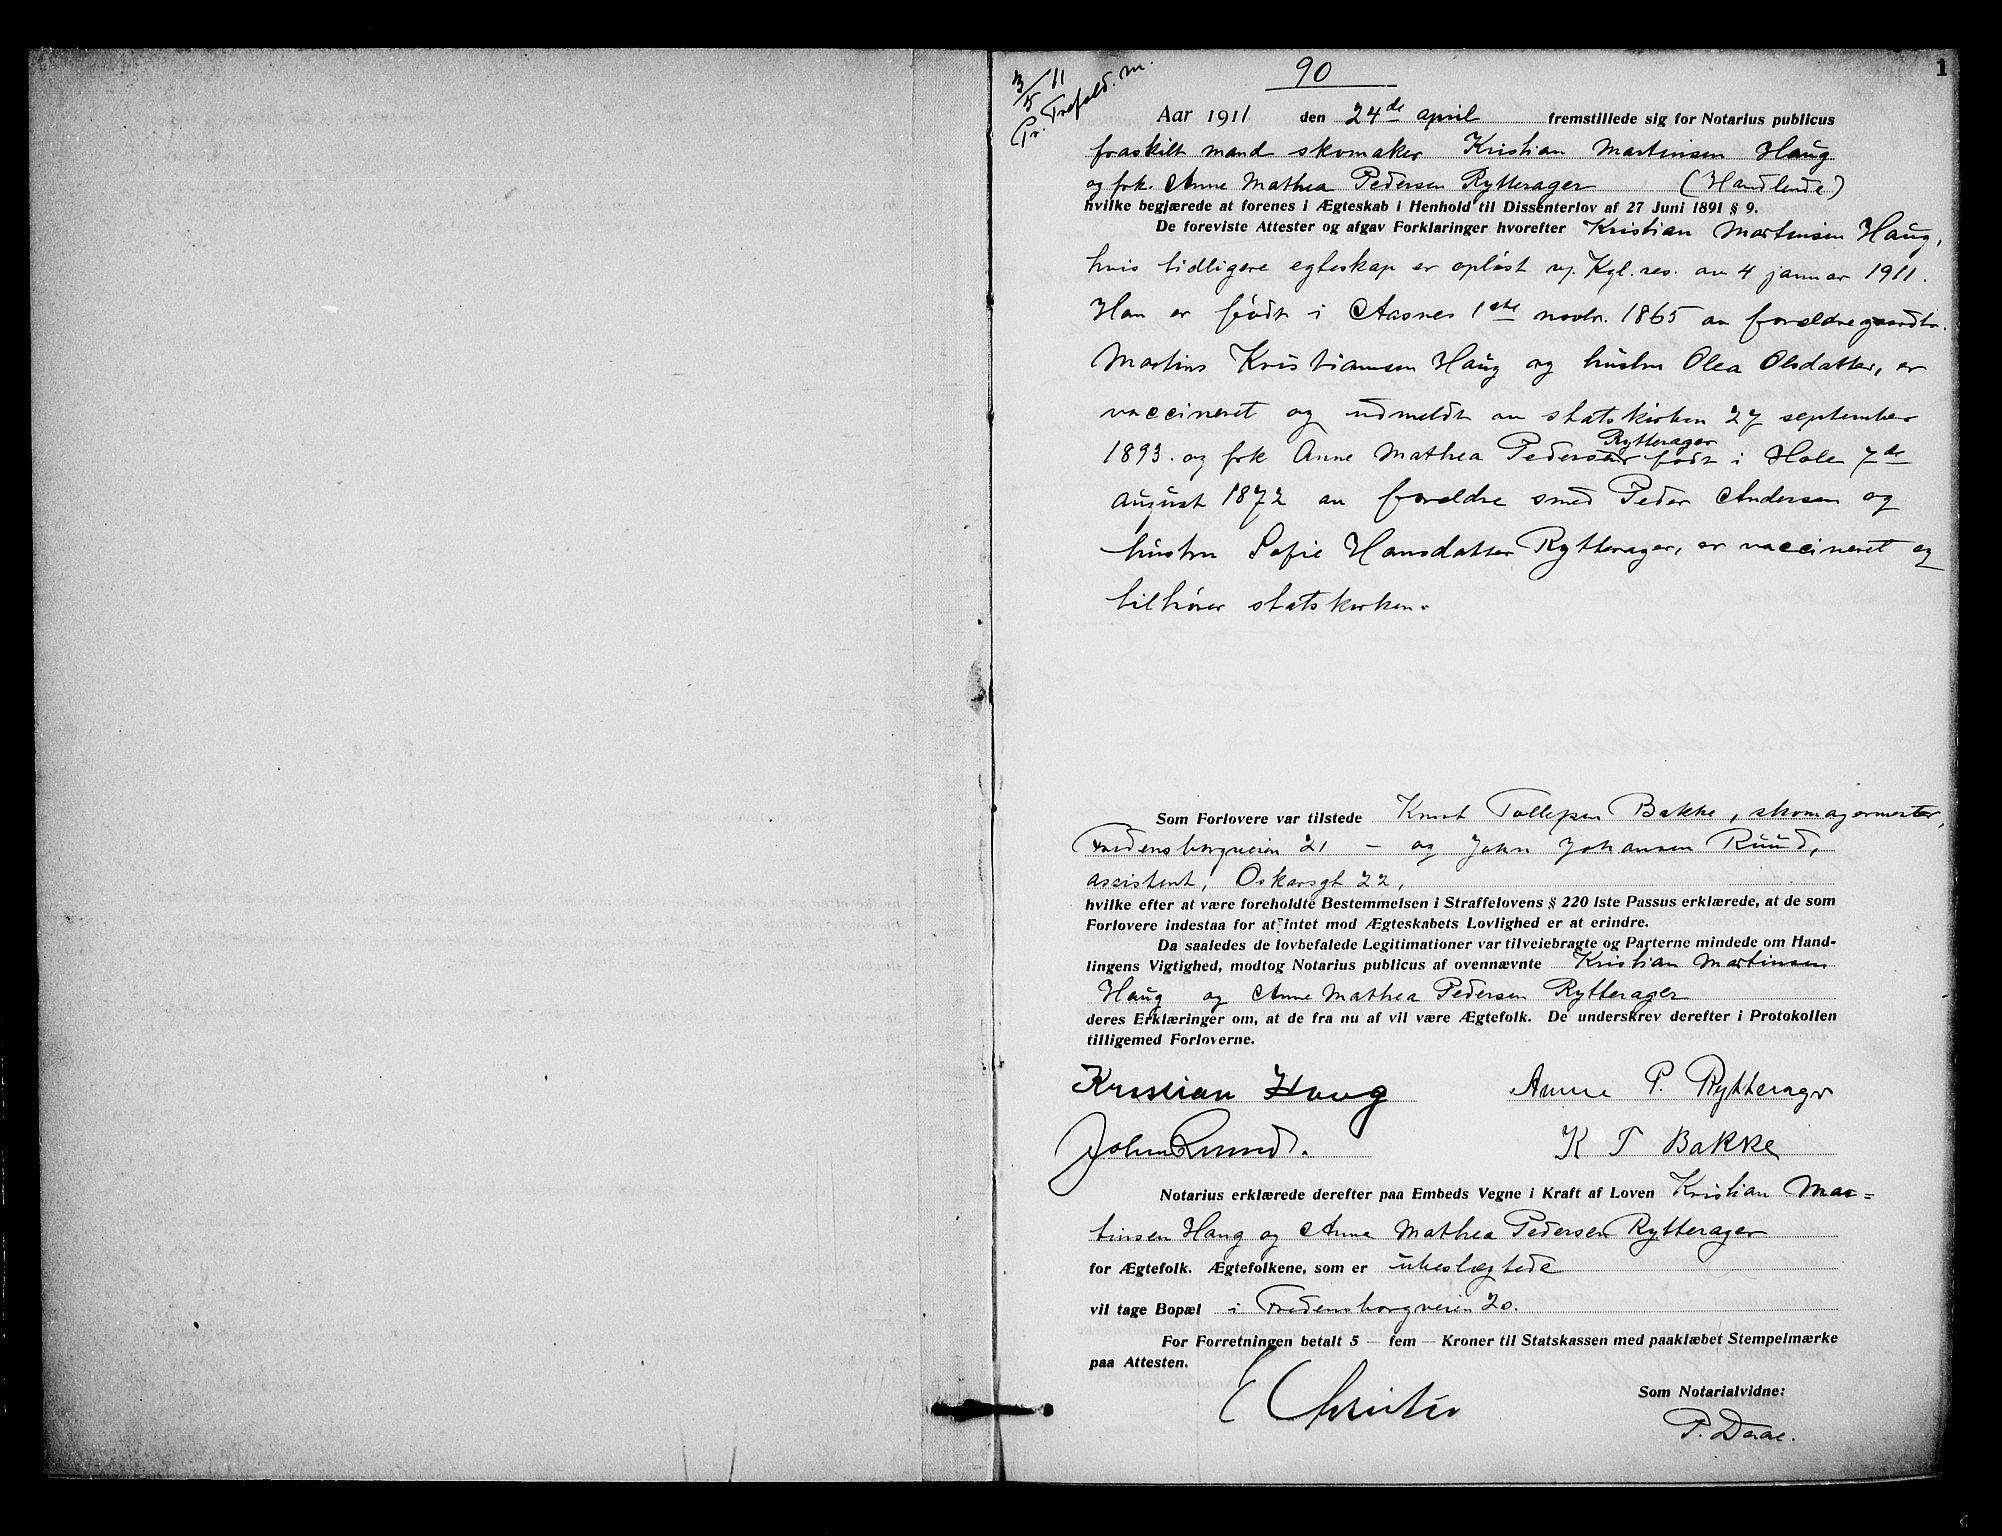 1
90
3/5 11
Pr. Trefold. m.
Aar 1911 den 24de april fremstillede sig for Notarius publicus
fraskilt mand skomaker Kristian Martinsen Haug
og frk. Anne Mathea Pedersen Rytterager (Handlende)
hvilke begjærede at forenes i Ægteskab i Henhold til Dissenterlov af 27 Juni 1891 § 9.
De foreviste Attester og afgav Forklaringer hvorefter Kristian Martinsen Haug,
hvis tidligere egteskap er opløst v. Kgl. res. av 4 januar 1911.
Han er født i Aasnes 1ste novbr. 1865 av forældre gaardbr.
Martins Kristiansen Haug og hustru Olea Olsdatter, er
vaccineret og udmeldt av statskirken 27 september
1893. og frk Anne Mathea Pedersen Rytterager født i Hole 7de
august 1872 av forældre smed Peder Andersen og
hustru Sofie Hansdatter Rytterager, er vaccineret og
tilhører statskirken.
Som Forlovere var tilstede Knut Tollefsen Bakke, skomagermester,
Fredensborgveien 21 — og John Johansen Ruud,
assistent, Oskarsgt 22,
hvilke efter at være foreholdte Bestemmelsen i Straffelovens § 220 1ste Passus erklærede, at de som
Forlovere indestaa for at intet mod Ægteskabets Lovlighed er at erindre.
Da saaledes de lovbefalede Legitimationer var tilveiebragte og Parterne mindede om Hand-
lingens Vigtighed, modtog Notarius publicus af ovennævnte Kristian Martinsen
Haug og Anne Mathea Pedersen Rytterager
deres Erklæringer om, at de fra nu af vil være Ægtefolk. De underskrev derefter i Protokollen
tilligemed Forloverne.
Kristian Haug Anne P. Rytterager
John Ruud. K T Bakke
Notarius erklærede derefter paa Embeds Vegne i Kraft af Loven Kristian Mar=
tinsen Haug og Anne Mathea Pedersen Rytterager
for Ægtefolk. Ægtefolkene, som er ubeslægtede
vil tage Bopæl i Fredensborgveien 20.
For Forretningen betalt 5 — fem — Kroner til Statskassen med paaklæbet Stempelmærke
paa Attesten.
Som Notarialvidne:
P. Daae.